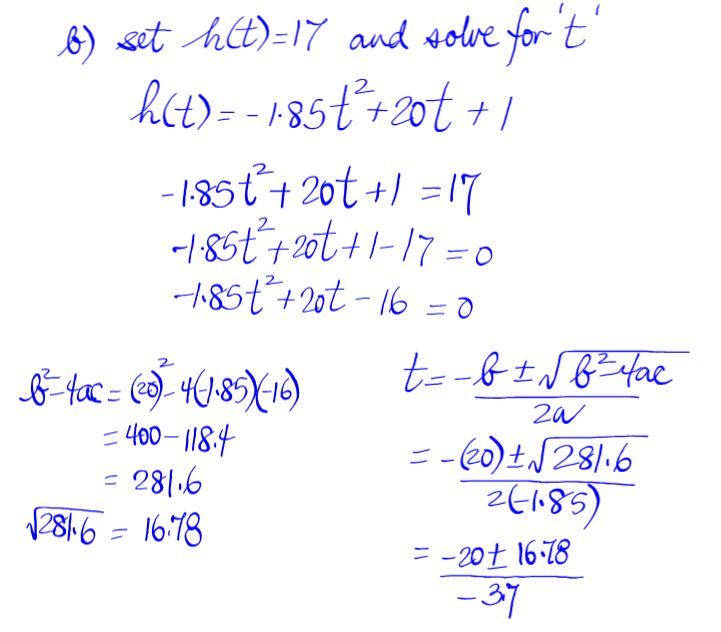 b) set h(t)=17 and solve for 't'
h(t)= -1.85t²+20t+1
-1.85t²+20t+1 =17
-1.85t²+20t+1-17=0
-1.85t²+20t-16 =0
b²-4ac = (20)²-4(-1.85)(-16)
=400-118.4
= 281.6
√281.6 = 16.78
t= -b±√b²-4ac
2a
= -(20)±√281.6
2(-1.85)
= -20± 16.78
-3.7